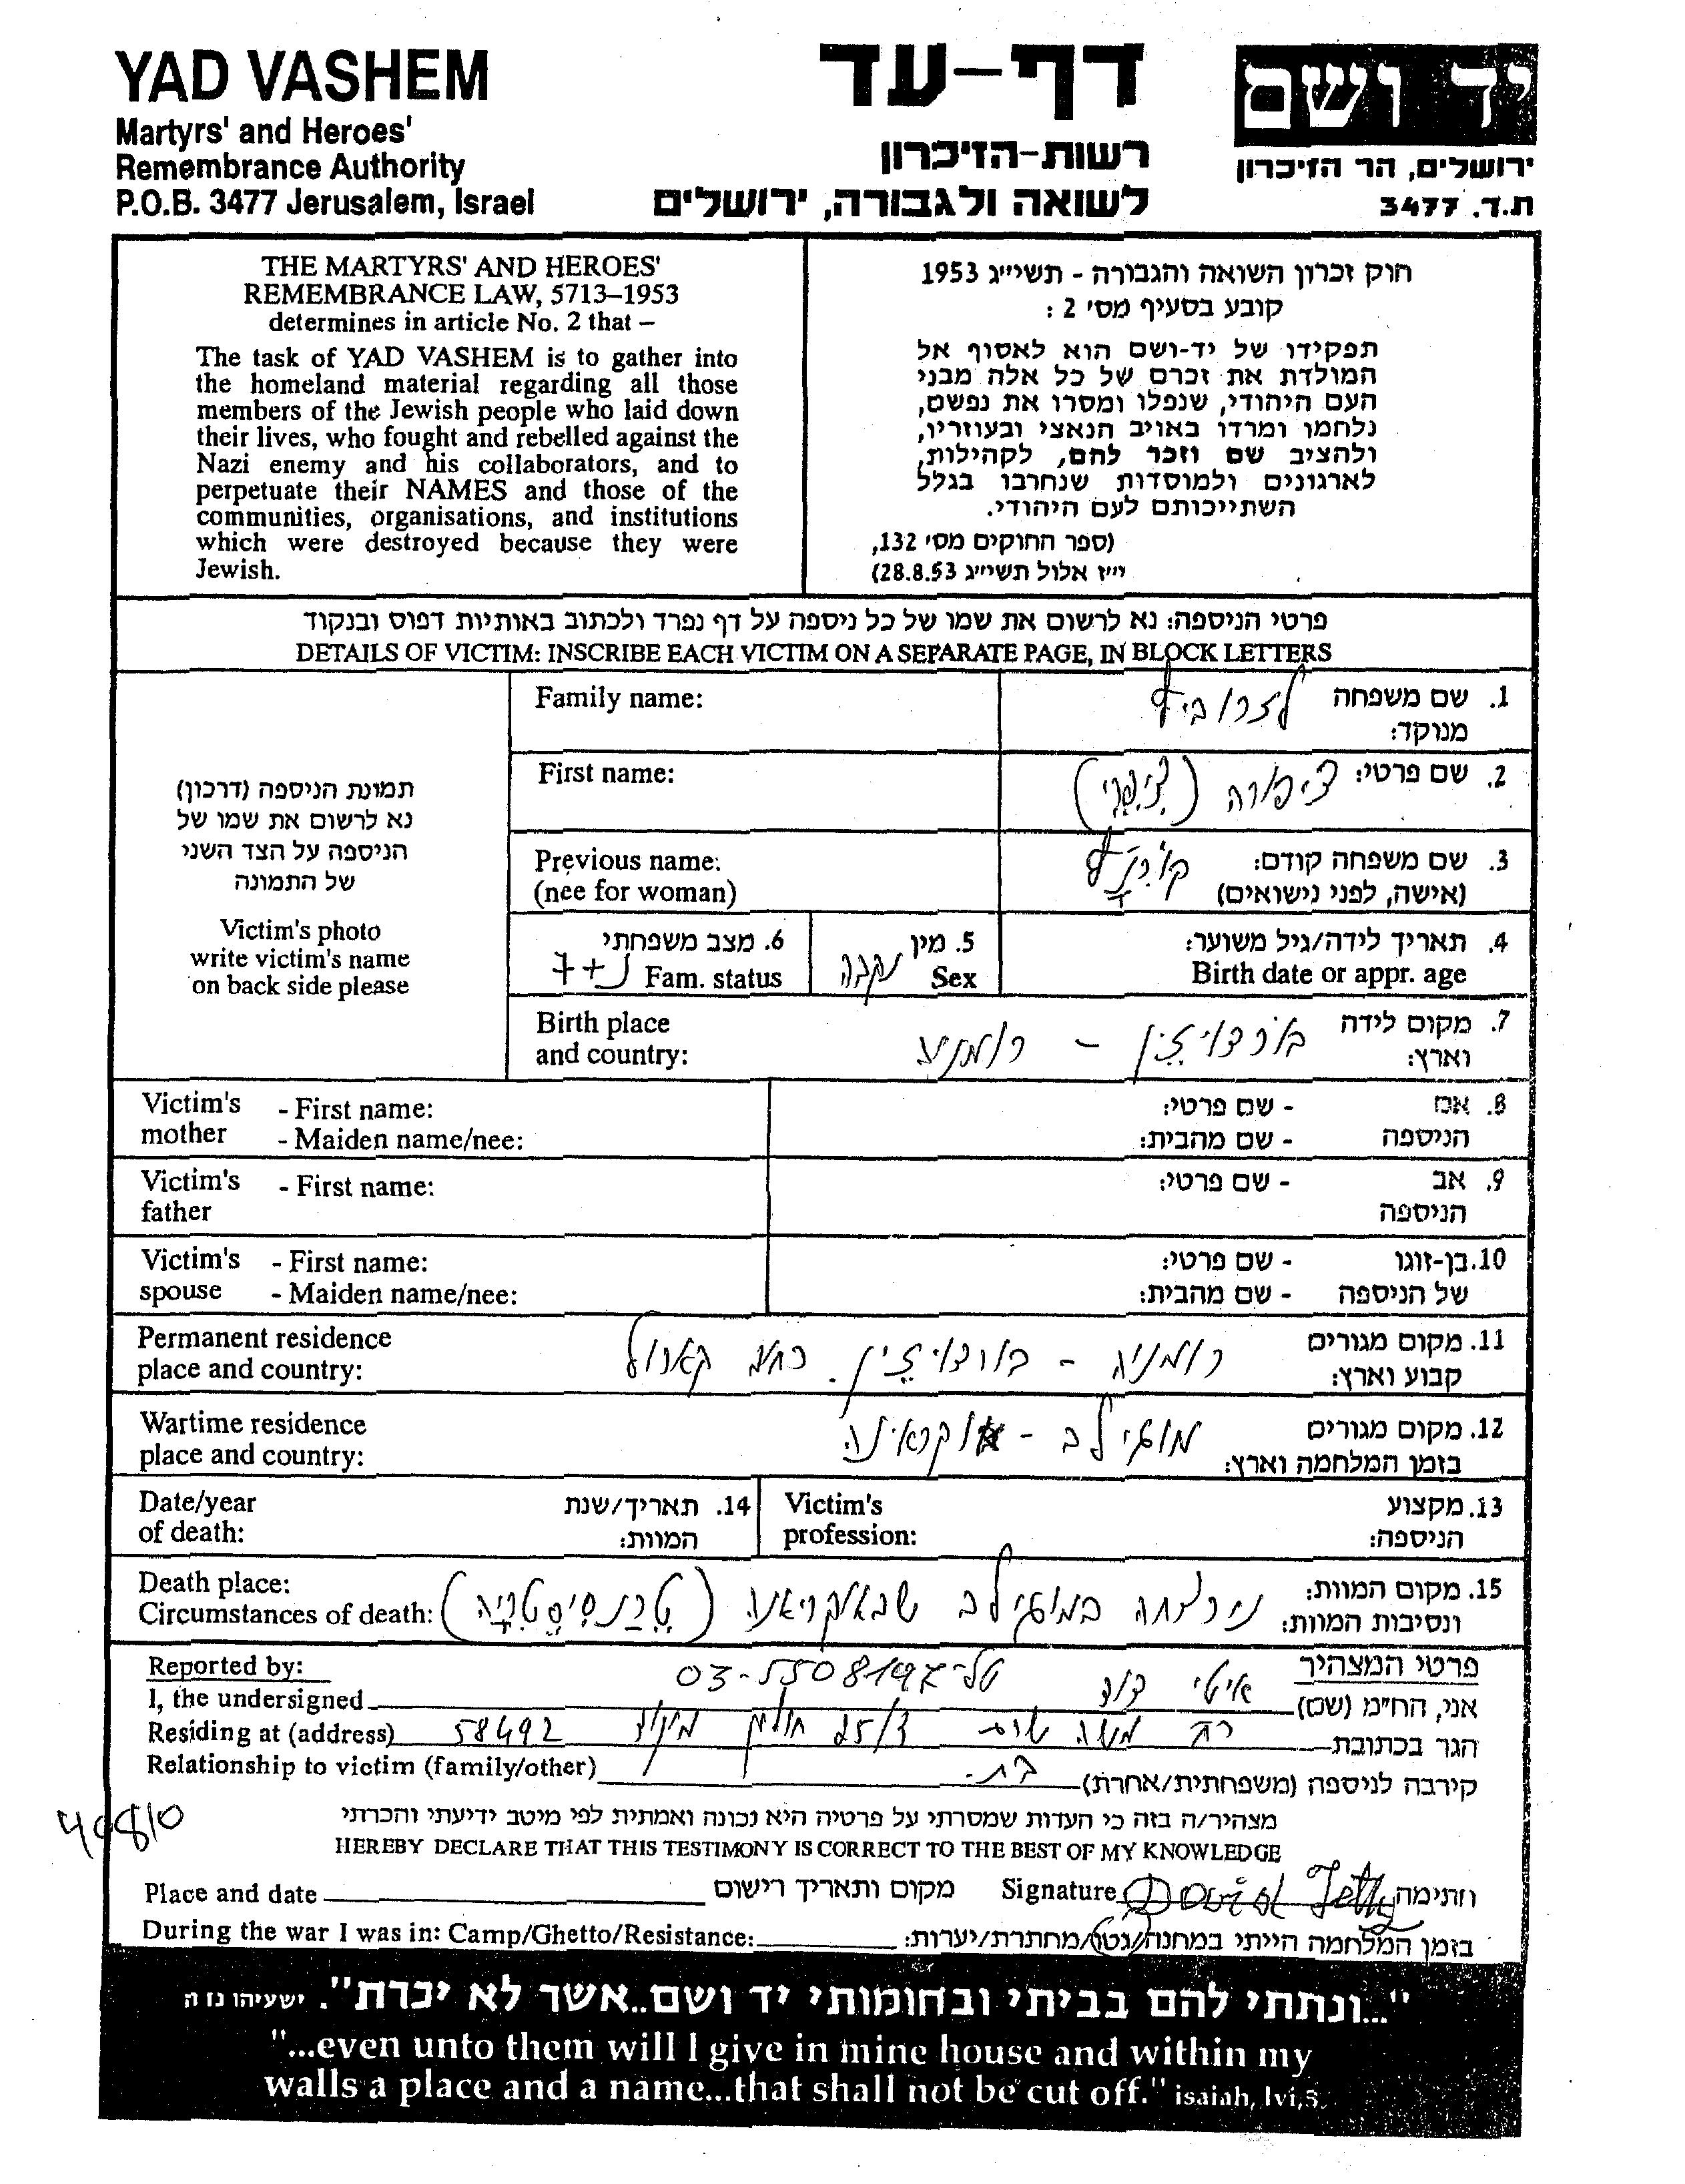 YAD VASHEM
Martyrs' and Heroes'
Remembrance Authority
P.O.B. 3477 Jerusalem, Israel
דף-עד
רשות-הזיכרון
לשואה ולגבורה, ירושלים
יד ושם
ירושלים, הר הזיכרון
ת.ד. 3477
THE MARTYRS' AND HEROES'
REMEMBRANCE LAW, 5713–1953
determines in article No. 2 that –
The task of YAD VASHEM is to gather into
the homeland material regarding all those
members of the Jewish people who laid down
their lives, who fought and rebelled against the
Nazi enemy and his collaborators, and to
perpetuate their NAMES and those of the
communities, organisations, and institutions
which were destroyed because they were
Jewish.
חוק זכרון השואה והגבורה - תשי״ג 1953
קובע בסעיף מס׳ 2 :
תפקידו של יד-ושם הוא לאסוף אל
המולדת את זכרם של כל אלה מבני
העם היהודי, שנפלו ומסרו את נפשם,
נלחמו ומרדו באויב הנאצי ובעוזריו,
ולהציב שם וזכר להם, לקהילות,
לארגונים ולמוסדות שנחרבו בגלל
השתייכותם לעם היהודי.
(ספר החוקים מס׳ 132,
י״ז אלול תשי״ג 28.8.53)
פרטי הניספה: נא לרשום את שמו של כל ניספה על דף נפרד ולכתוב באותיות דפוס ובנקוד
DETAILS OF VICTIM: INSCRIBE EACH VICTIM ON A SEPARATE PAGE, IN BLOCK LETTERS
תמונת הניספה (דרכון)
נא לרשום את שמו של
הניספה על הצד השני
של התמונה
Victim's photo
write victim's name
on back side please
Family name:
1. שם משפחה לזרוביץ
מנוקד:
First name:
2. שם פרטי: ציפורה
Previous name:
(nee for woman)
3. שם משפחה קודם:
(אישה, לפני נישואים)
4. תאריך לידה/גיל משוער:
Birth date or appr. age
5. מין נקבה
Sex
6. מצב משפחתי
Fam. status נ+7
Birth place
and country:
7. מקום לידה
וארץ:
Victim's - First name:
mother - Maiden name/nee:
8. אם - שם פרטי:
הניספה - שם מהבית:
Victim's - First name:
father
9. אב - שם פרטי:
הניספה
Victim's - First name:
spouse - Maiden name/nee:
10. בן-זוגו - שם פרטי:
של הניספה - שם מהבית:
Permanent residence
place and country:
11. מקום מגורים
קבוע וארץ: רומניה -
Wartime residence
place and country:
12. מקום מגורים
בזמן המלחמה וארץ: מוגילב - אוקראינה
Date/year
of death:
14. תאריך/שנת
המוות:
Victim's
profession:
13. מקצוע
הניספה:
Death place:
Circumstances of death:
15. מקום המוות:
ונסיבות המוות: נירצחה במוגילב שבאוקראינה (טרנסניסטריה)
Reported by:
פרטי המצהיר
טל-03-5508197
I, the undersigned
אני, הח״מ (שם) איטי דוד
Residing at (address)
הגר בכתובת רח משה שרת 25/3 חולון מיקוד 58492
Relationship to victim (family/other)
קירבה לניספה (משפחתית/אחרת) בת.
מצהיר/ה בזה כי העדות שמסרתי על פרטיה היא נכונה ואמתית לפי מיטב ידיעתי והכרתי
HEREBY DECLARE THAT THIS TESTIMONY IS CORRECT TO THE BEST OF MY KNOWLEDGE
Place and date
מקום ותאריך רישום
Signature David Jetty וחתימה
During the war I was in: Camp/Ghetto/Resistance:
בזמן המלחמה הייתי במחנה/גטו/מחתרת/יערות:
"...ונתתי להם בביתי ובחומותי יד ושם..אשר לא יכרת". ישעיהו נו ה
"...even unto them will I give in mine house and within my
walls a place and a name...that shall not be cut off." isaiah, lvi,5.